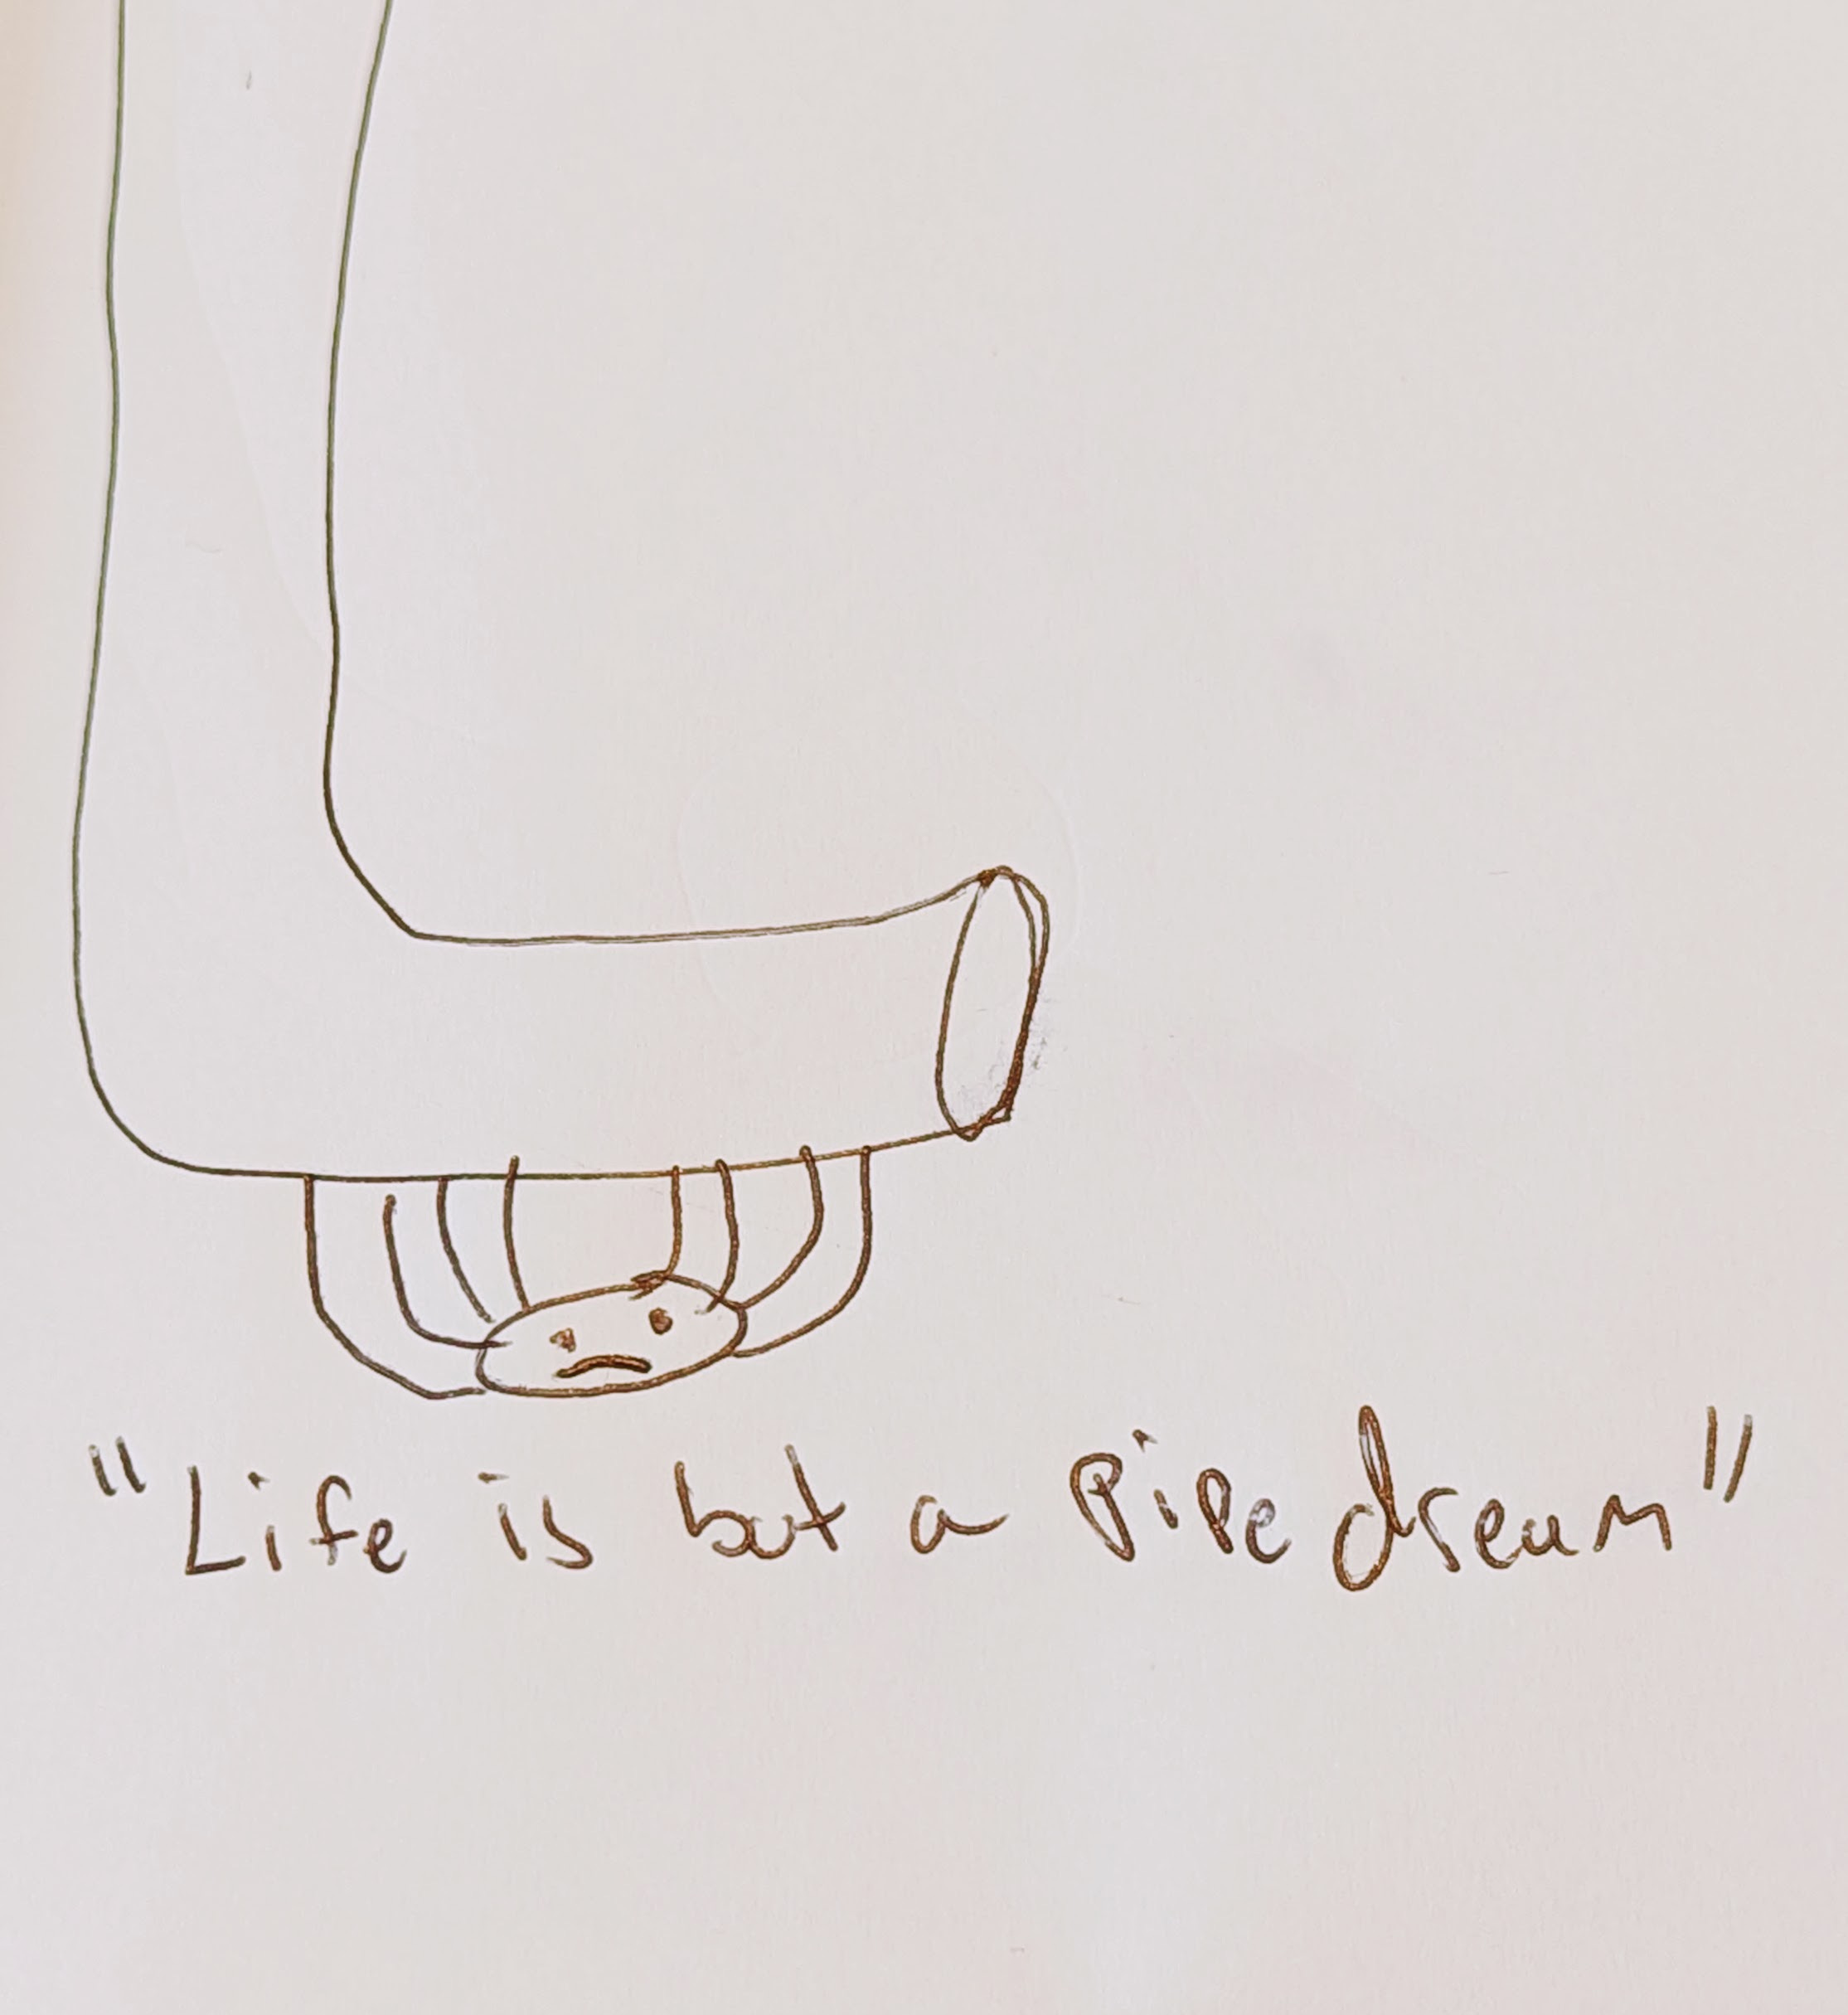 "Life is but a Pipe dream"